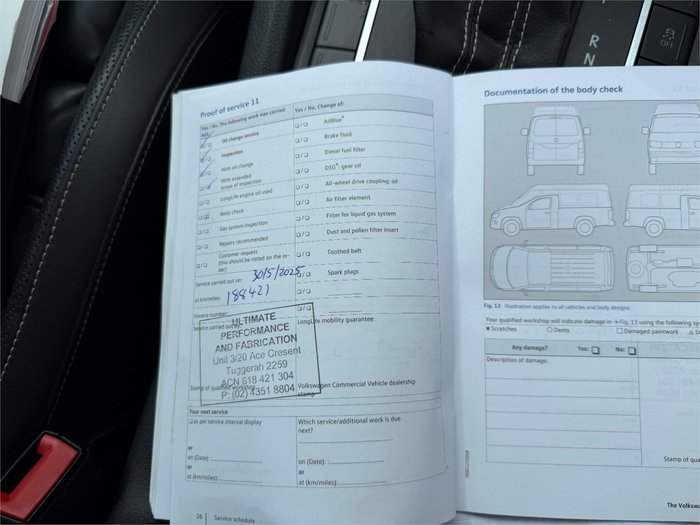 Proof of service 11
Yes / No. The following work was carried
out:
Oil change service
Inspection
With oil change
With extended
scope of inspection
LongLife engine oil used
Body check
Gas system inspection
Repairs recommended
Customer request
(this should be noted on the or-
der)
Service carried out on: 30/5/2025
at km/miles: 188421
Invoice number:
Service carried out by:
ULTIMATE
PERFORMANCE
AND FABRICATION
Unit 3/20 Ace Cresent
Tuggerah 2259
ACN 618 421 304
P: (02) 4351 8804
Stamp of qualified workshop
Yes / No. Change of:
AdBlue®
Brake fluid
Diesel fuel filter
DSG®: gear oil
All-wheel drive coupling: oil
Air filter element
Filter for liquid gas system
Dust and pollen filter insert
Toothed belt
Spark plugs
LongLife mobility guarantee:
Volkswagen Commercial Vehicle dealership
stamp
Your next service
as per service interval display
or
on (Date):
or
at (km/miles):
Which service/additional work is due
next?
on (Date):
or
at (km/miles):
26 Service schedule
Documentation of the body check
Fig. 13 Illustration applies to all vehicles and body designs.
Your qualified workshop will indicate damage in → Fig. 13 using the following sy
Scratches Dents Damaged paintwork
Any damage? Yes: No:
Description of damage:
Stamp of qua
The Volksw
R
N
OFF